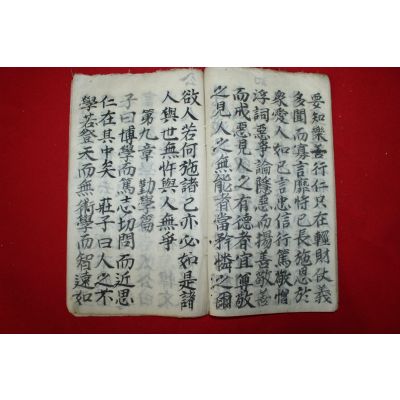 要知樂善行仁只在輕財仗義
多聞而寡言靡恃己長施恩於
衆愛人如己言忠信行篤敬憎
浮詞惡爭論隱惡而揚善敬善
而戒惡見人之有德者宜傾敬
之見人之無能者當矜憐之爾
欲人若何施諸己亦必如是諸
人與世無忤與人無爭
第九章 勤學篇
子曰博學而篤志切問而近思
仁在其中矣 莊子曰人之不
學若登天而無術學而智遠如